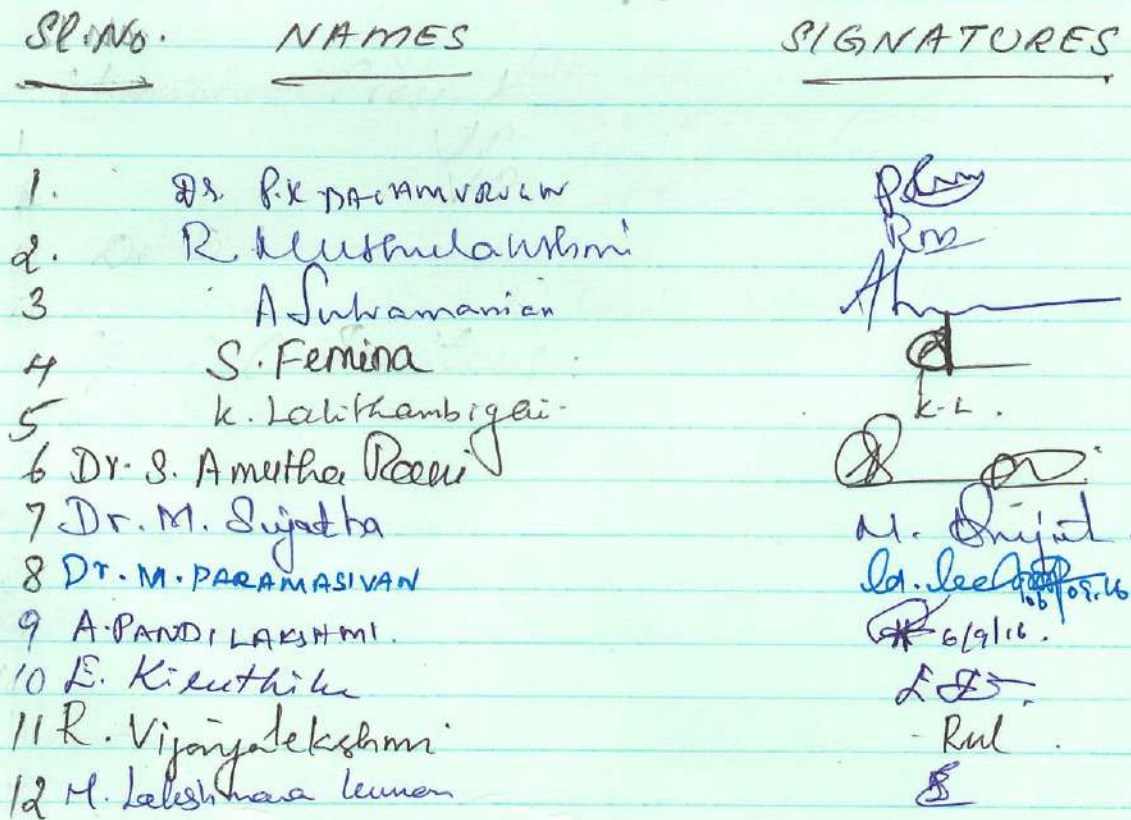 Sl.No. NAMES SIGNATURES
1. Dr. P.K
2. R. Muthulakshmi Rm
3 A Subramanian
4 S. Femina
5 K. Lalithambigai K-L.
6 Dr. S. Amutha Raani
7 Dr. M. Sujatha M. Sujat
8 Dr. M. PARAMASIVAN
9 A. PANDILAKSHMI. 6/9/16.
10 E. Kiruthika
11 R. Vijayalekshmi
12 M. Lakshmana kumar